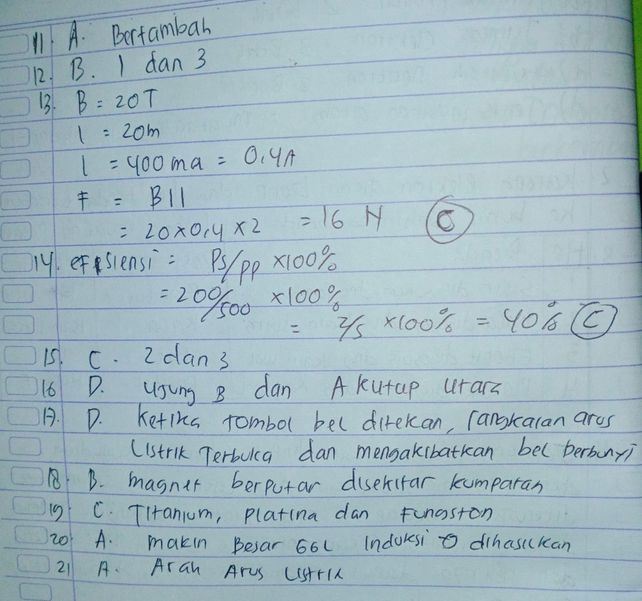 11. A. Bertambah
12. B. 1 dan 3
13. B = 20T
l = 20m
I = 400 ma = 0,4A
F = B I l
= 20 x 0,4 x 2 = 16 N C
14. efisiensi = Ps/pp x100%
= 200/500 x100%
= 2/5 x100% = 40% C
15. C. 2 dan 3
16 D. Ujung B dan A kutup utara
17. D. ketika tombol bel ditekan, rangkaian arus
listrik terbuka dan mengakibatkan bel berbunyi
18. B. magnet berputar disekitar kumparan
19. C. Titanium, platina dan fungston
20. A. makin Besar GGL Induksi dihasilkan
21 A. Arah Arus listrik